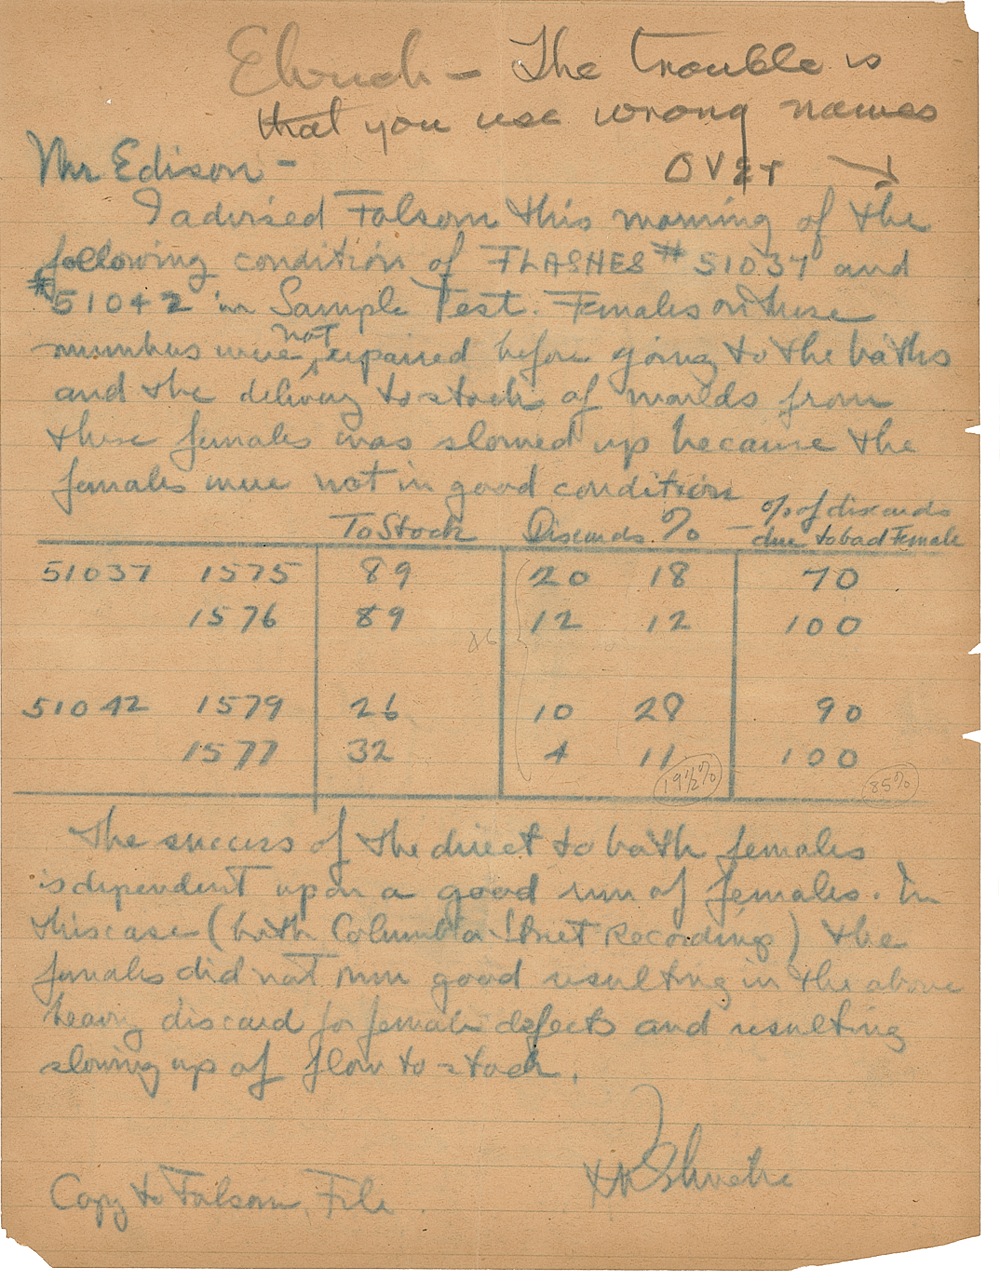 The trouble is
that you use wrong names
over
Mr Edison -
I advised Folsom this morning of the
following condition of FLASHES # 51037 and
# 51042 in Sample Test. Females on these
numbers were not repaired before going to the baths
and the delivery to stock of molds from
these females was slowed up because the
females were not in good condition
To Stock Discards % % of discards
due to bad Female
51037 1575 89 20 18 70
1576 89 12 12 100
46
51042 1579 26 10 28 90
1577 32 4 11 100
19½% 85%
The success of the direct to bath females
is dependent upon a good run of females. In
this case (both Columbia Street Recordings) the
females did not run good resulting in the above
heavy discard for female defects and resulting
slowing up of flow to stock.
Copy to Folsom, File.